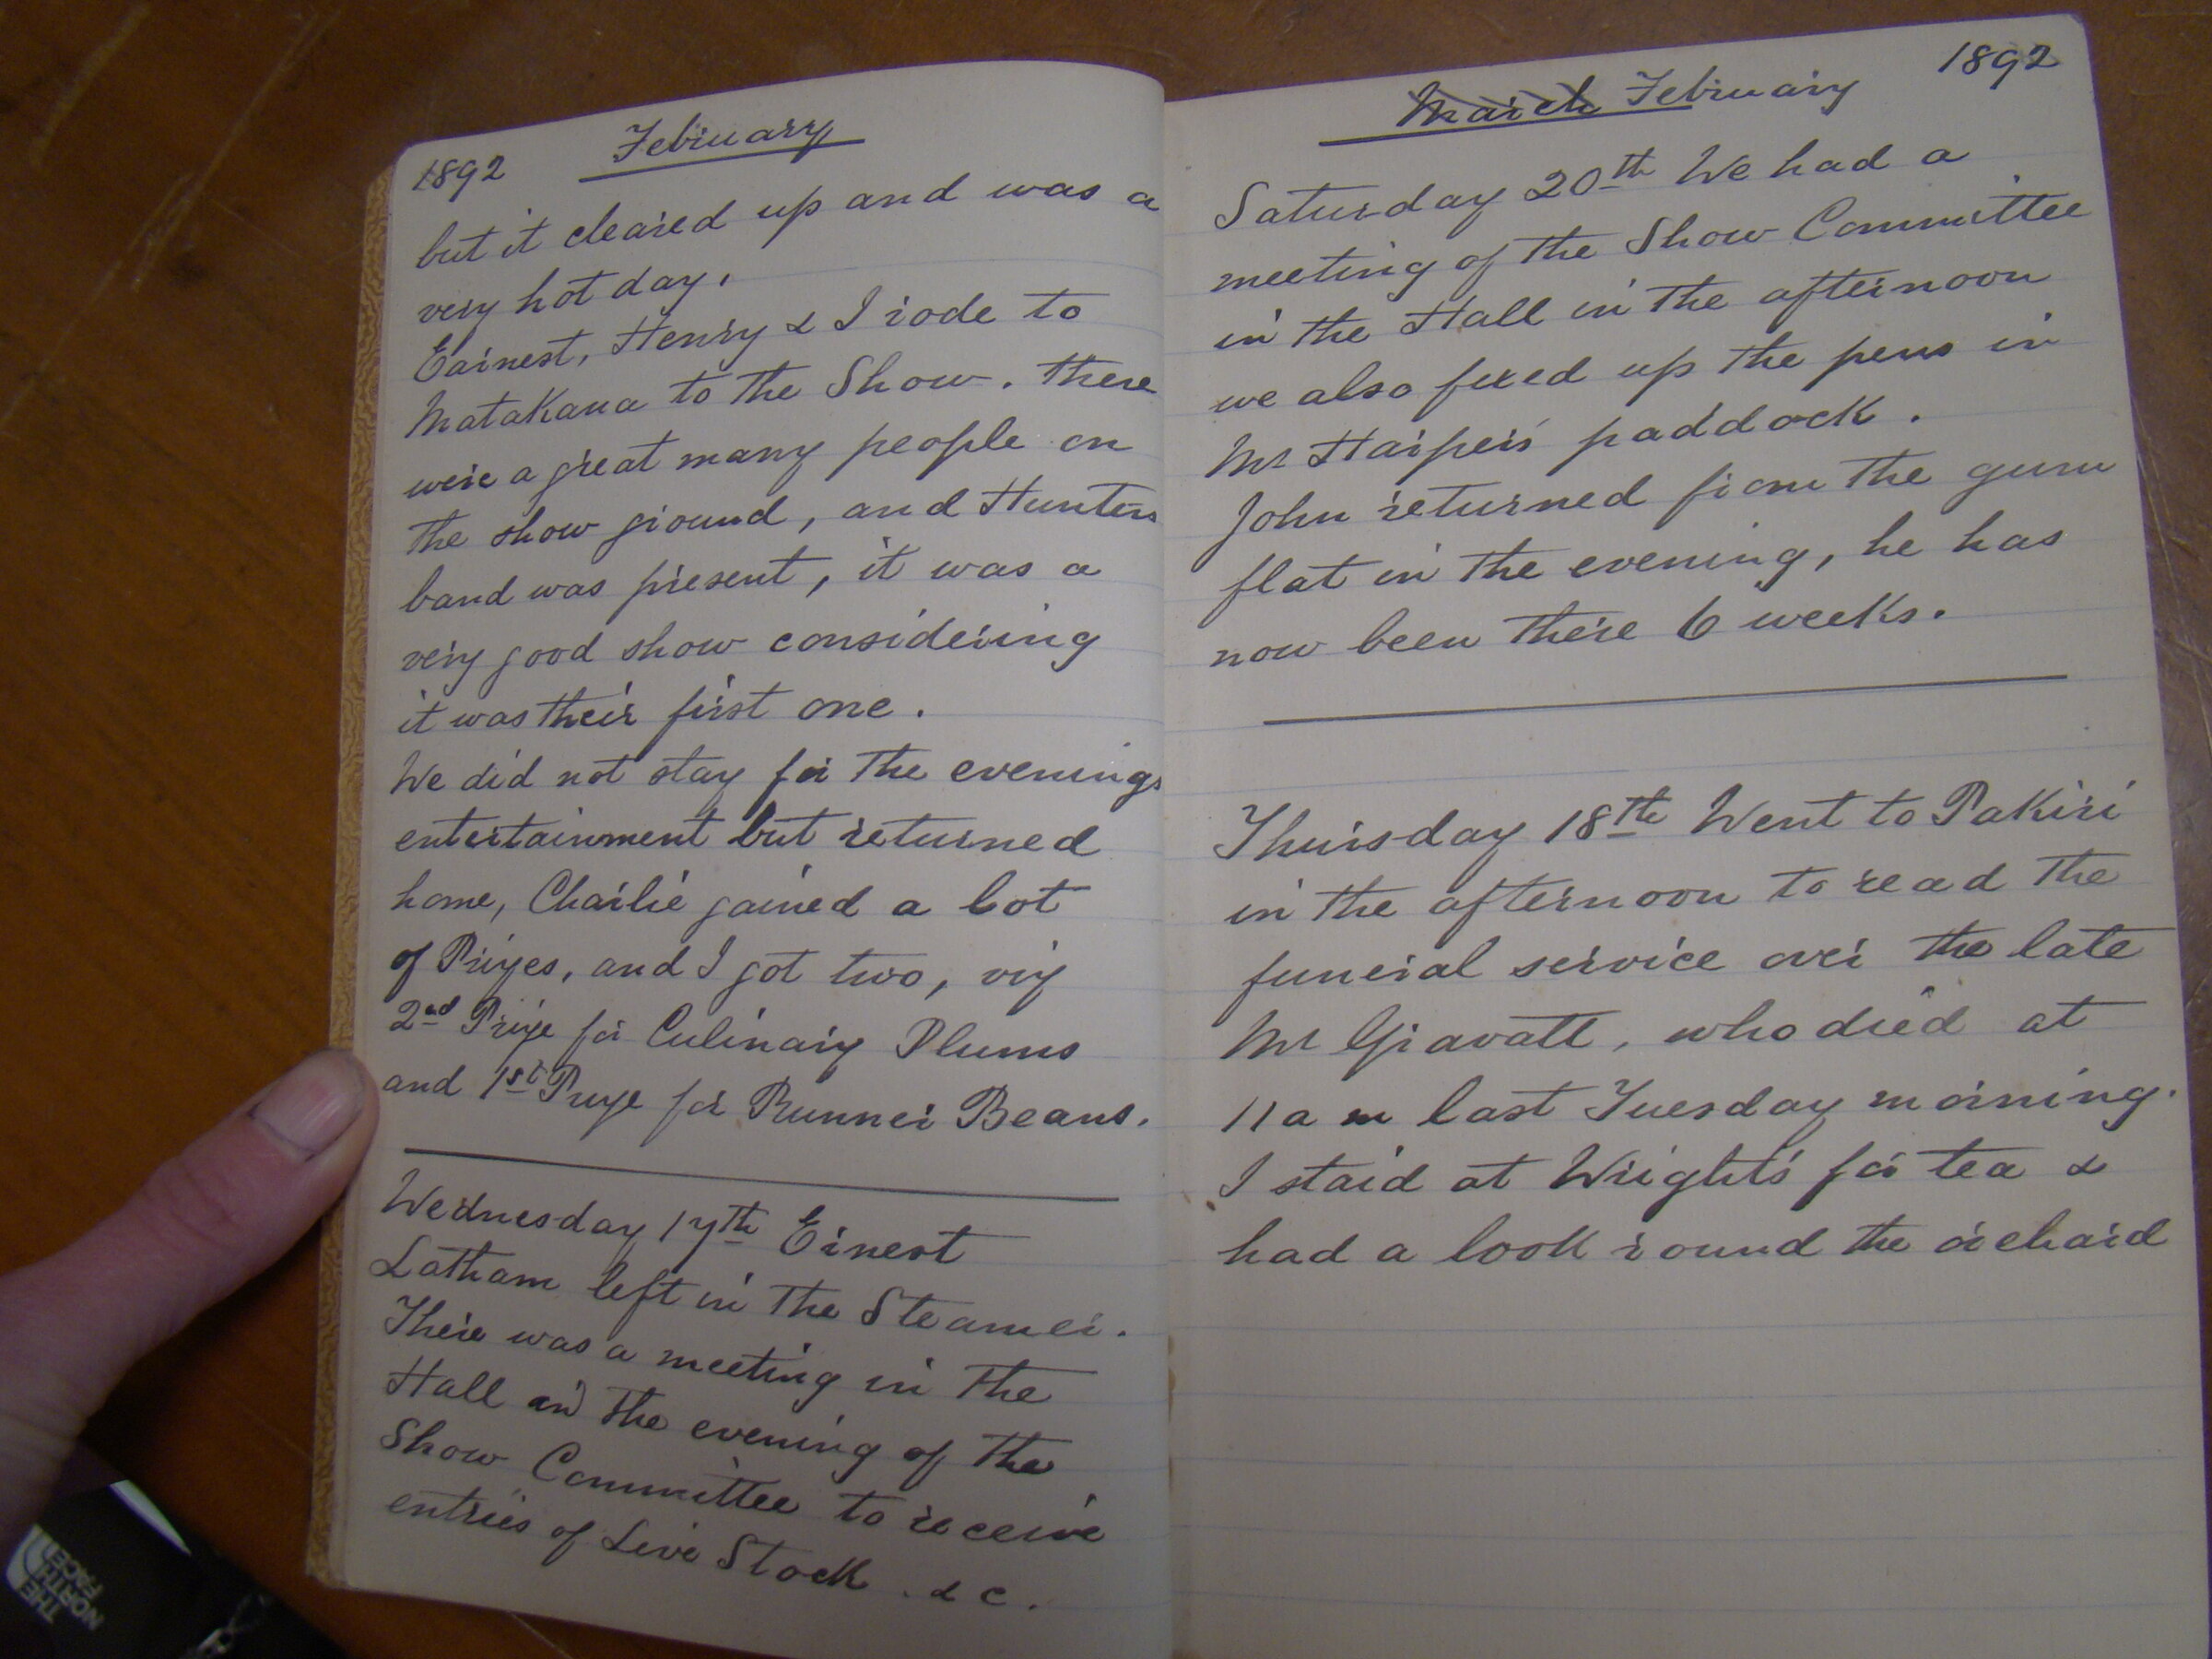 1892 February
but it cleared up and was a
very hot day.
Earnest, Henry & I rode to
Matakana to the Show. there
were a great many people on
the show ground, and Hunters
band was present, it was a
very good show considering
it was their first one.
We did not stay for the evenings
entertainment but returned
home, Charlie gained a lot
of Prizes, and I got two, viz
2nd Prize for Culinary Plums
and 1st Prize for Runner Beans.
Wednesday 17th Ernest
Latham left in the Steamer.
There was a meeting in the
Hall in the evening of the
Show Committee to receive
entries of Live Stock &c.
March February 1892
Saturday 20th We had a
meeting of the Show Committee
in the Hall in the afternoon
we also fixed up the pens in
Mr Harper's paddock.
John returned from the gum
flat in the evening, he has
now been there 6 weeks.
Thursday 18th Went to Pakiri
in the afternoon to read the
funeral service over the late
Mr Gravatt, who died at
11 a m last Tuesday morning.
I staid at Wright's for tea &
had a look round the orchard
THE
NORTH
FACE